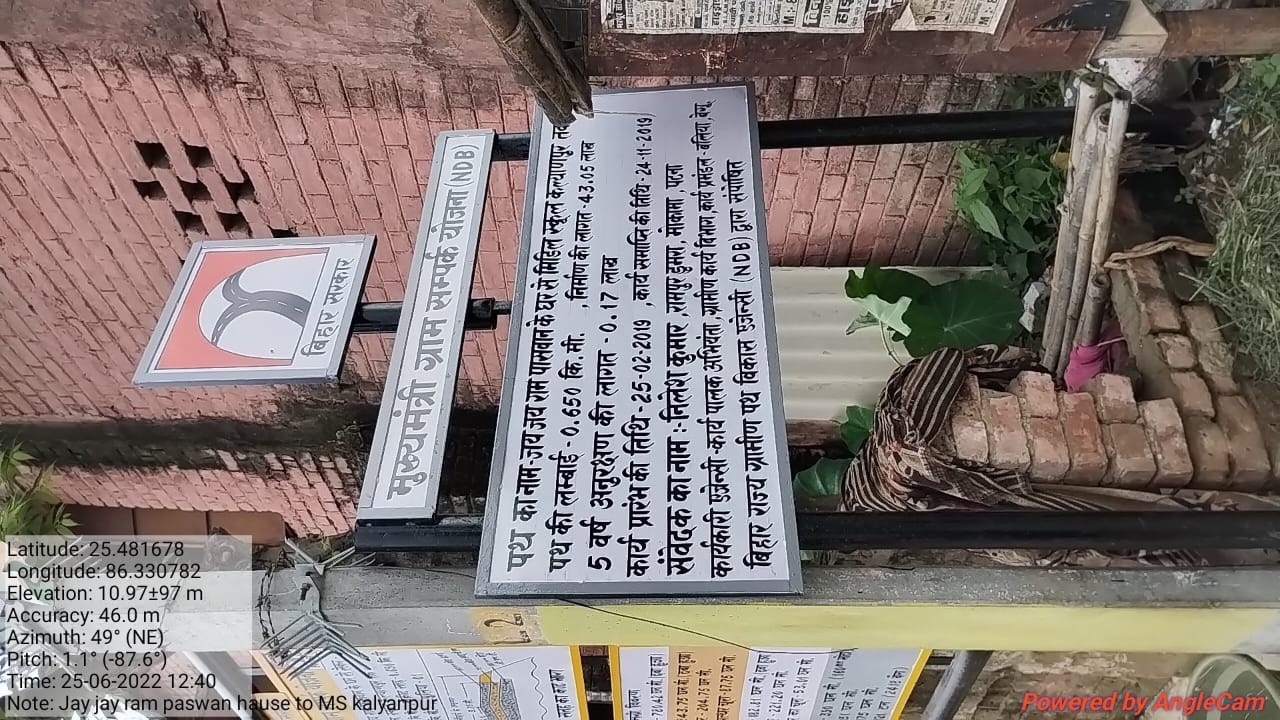 बिहार सरकार
मुख्यमंत्री ग्राम सम्पर्क योजना (NDB)
पथ का नाम-जय जय राम पासवान के घर से मिडिल स्कूल कल्याणपुर तक
पथ की लम्बाई- 0.650 कि. मी. , निर्माण की लागत -43.05 लाख
5 वर्ष अनुरक्षण की लागत - 0.17 लाख
कार्य प्रारंभ की तिथि - 25-02-2019 ,कार्य समाप्ति की तिथि -24-11-2019
संवेदक का नाम :-निलेश कुमार , रामपुर डुमरा, मोकामा , पटना
कार्यकारी एजेन्सी -कार्य पालक अभियंता ,ग्रामीण कार्य विभाग,कार्य प्रमंडल -बलिया, बेगू.
बिहार राज्य ग्रामीण पथ विकास एजेन्सी (NDB) द्वारा संपोषित
Latitude: 25.481678
Longitude: 86.330782
Elevation: 10.97±97 m
Accuracy: 46.0 m
Azimuth: 49° (NE)
Pitch: 1.1° (-87.6°)
Time: 25-06-2022 12:40
Note: Jay jay ram paswan hause to MS kalyanpur
Powered by AngleCam